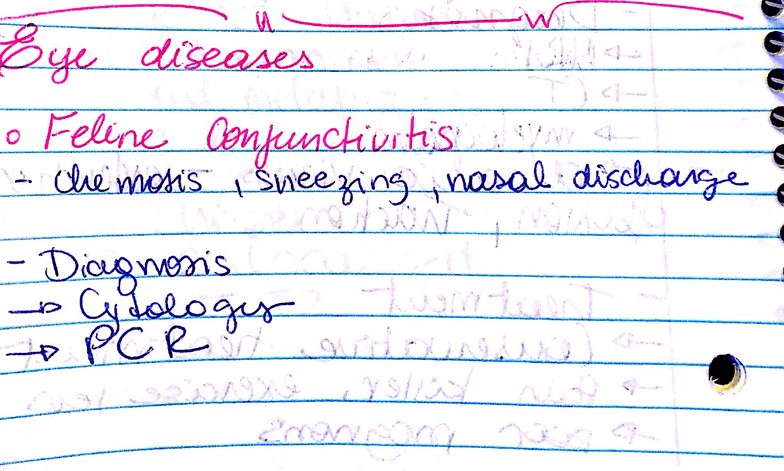 Eye diseases
o Feline Conjunctivitis
- Chemosis, sneezing, nasal discharge
- Diagnosis
→ Cytology
→ PCR